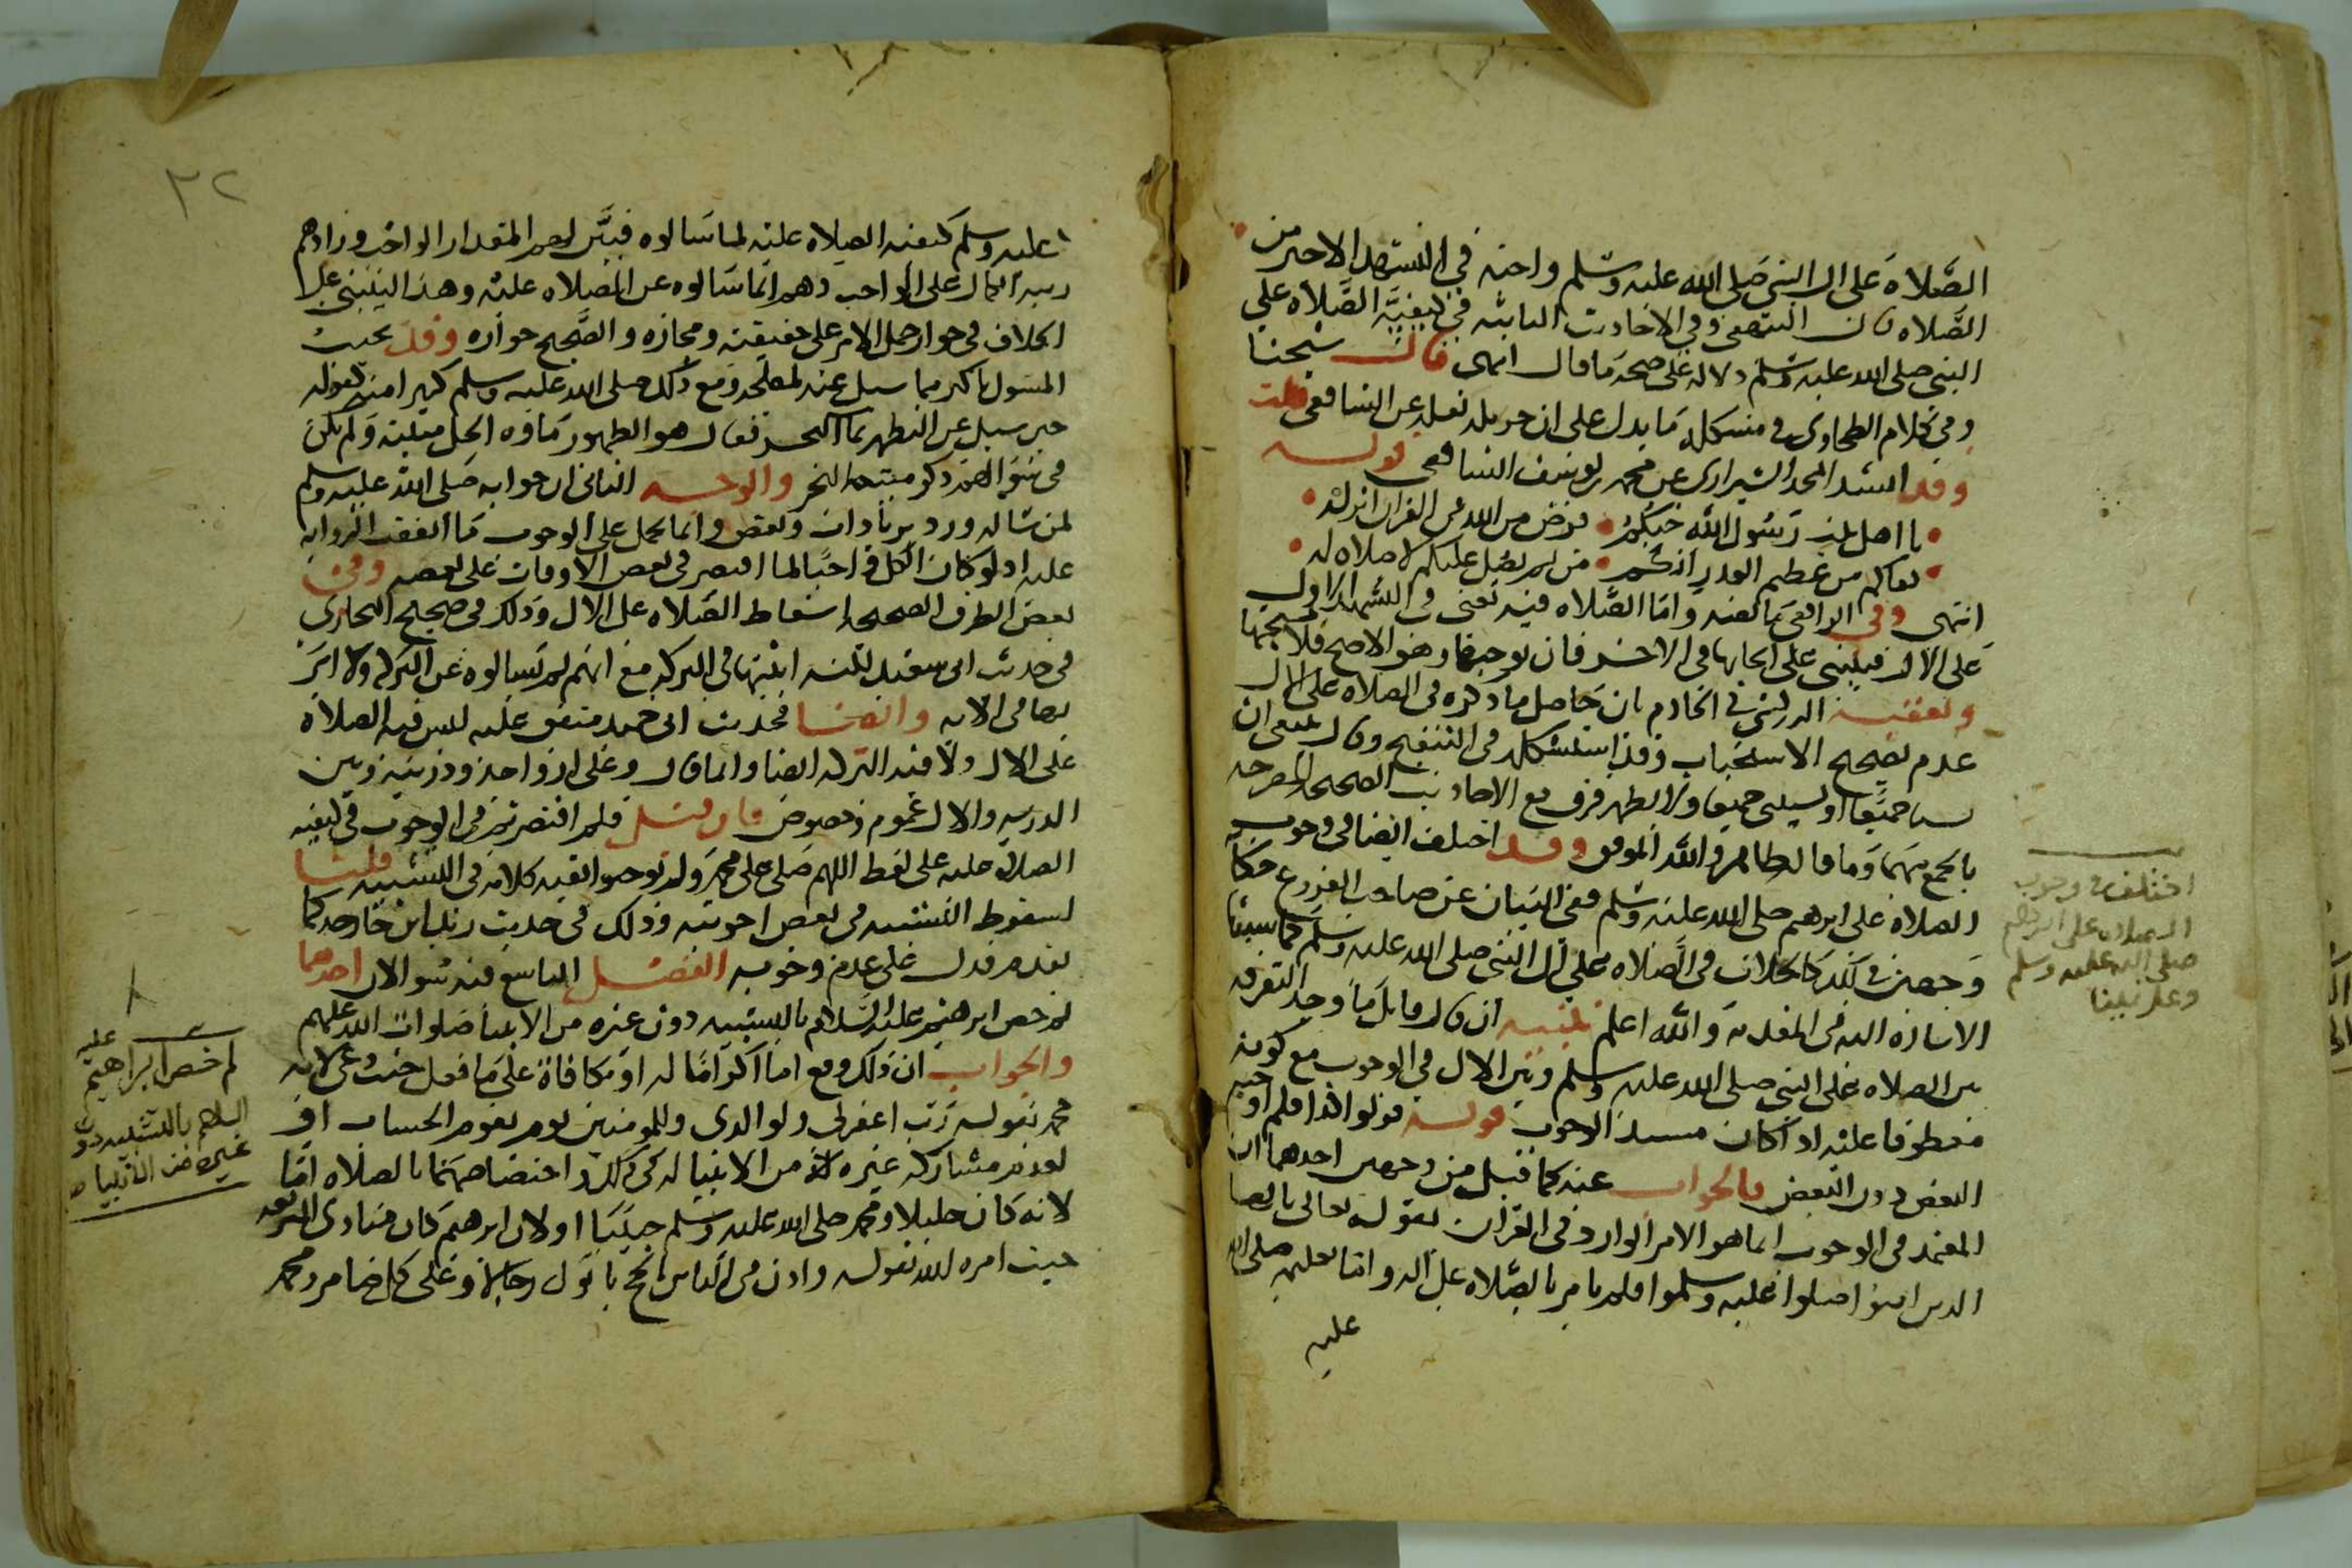 الصلاة على ال النبي صلى الله عليه وسلم واجبه في التشهد الاخير من
الصلاه قال البيهقي وفي الاحاديث الثابته في كيفية الصلاه على
النبي صلى الله عليه وسلم دلاله على صحه ما قال انتهى قال شيخنا
وفي كلام الطحاوي في مشكله ما يدل على ان حرمله نقله عن الشافعي قلت
وقد انشد المجد الشيرازي عن محمد بن يوسف الشافعي قوله
يا اهل بيت رسول الله حبكم فرض من الله في القران انزله
كفاكم من عظيم القدر انكم من لم يصل عليكم لا صلاه له
انتهى وفي الرافعي ما لفظه واما الصلاه فيه يعني في التشهد الاول
على الال فينبني على ايجابها في الاخير فان لم نوجبها وهو الاصح فلا نستحبها
وتعقبه الزركشي في الخادم بان حاصل ما ذكره في الصلاه على الال
عدم تصحيح الاستحباب وقد استشكله في التنقيح وقال ينبغي ان
يسنا جميعا او لا يسنا جميعا ولا يظهر فرق مع الاحاديث الصحيحه المصرحه
بالجمع بينهما وما قاله ظاهر والله الموفق وقد اختلف ايضا في وجوب
الصلاه على ابرهيم صلى الله عليه وسلم ففي البيان عن صاحب الفروع حكاية
وجهين في ذلك كالخلاف في الصلاه على ال النبي صلى الله عليه وسلم كما سبقت
الاشاره اليه في المقدمة والله اعلم تنبيه ان قال قائل ما وجه التفرقه
بين الصلاه على النبي صلى الله عليه وسلم وبين الال في الوجوب مع كونه
معطوفا عليه اذ كان مستند الوجوب قوله قولوا كذا فلم اوجب
البعض دون البعض فالجواب عنه كما قيل من وجهين احدهما ان
المعتمد في الوجوب انما هو الامر الوارد في القران بقوله تعالى يا ايها
الذين امنوا صلوا عليه وسلموا فلم يامر بالصلاه على اله واما تعليمه صلى الله
عليه
اختلف في وجوب
الصلاه على ابرهيم
صلى الله عليه وسلم
وعلى نبينا
٣٢
عليه وسلم كيفيه الصلاه عليه لما سالوه فبين لهم المقدار الواجب وزادهم
رتبه الكمال على الواجب وهم انما سالوه عن الصلاه عليه وهذا ينبني على
الخلاف في جواز حمل الامر على حقيقته ومجازه والصحيح جوازه وقد يجيب
المسول باكثر مما سيل عنه لمصلحه وقع ذلك صلى الله عليه وسلم كثيرا منه كقوله
حين سيل عن التطهر بماء البحر فقال هو الطهور ماوه الحل ميتته ولم يكن
في سوالهم ذكر ميته البحر والوجه الثاني ان جوابه صلى الله عليه وسلم
لمن ساله ورد بزيادات ونقص وانما يحمل على الوجوب ما اتفقت الروايه
عليه اذ لو كان الكل واجبا لما اقتصر في بعض الاوقات على بعضه وفي
بعض الطرق الصحيحه اسقاط الصلاه على الال وذلك في صحيح البخاري
في حديث ابي سعيد لكنه اثبتها في البركه مع انهم لم يسالوه عن البركه ولا امر
بها في الايه وايضا فحديث ابي حميد متفق عليه ليس فيه الصلاه
على الال ولا فيه البركه ايضا وانما قال وعلى ازواجه وذريته وبين
الذريه والال عموم وخصوص فان قيل فلم اقتصرتم في الوجوب في كيفيه
الصلاه عليه على لفظ اللهم صلى على محمد ولم توجبوا بقيه كلامه في التشبيه قلنا
لسقوط التشبيه في بعض اجوبته وذلك في حديث زيد ابن خارجه كما
تقدم فدل على عدم وجوبه الفصل التاسع فيه سوالان احدهما
لم خص ابرهيم عليه السلام بالتشبيه دون غيره من الانبيا صلوات الله عليهم
والجواب ان ذلك وقع اما اكراما له او مكافاة على ما فعل حيث دعى لامه
محمد بقوله رب اغفر لي ولوالدي وللمومنين يوم يقوم الحساب او
لعدم مشاركه غيره من الانبيا له في ذلك واختصاصهما بالصلاه اما
لانه كان خليلا ومحمد صلى الله عليه وسلم حبيبا او لان ابرهيم كان منادى الشريعه
حيث امره الله بقوله واذن في الناس بالحج ياتوك رجالا وعلى كل ضامر ومحمد
لم خص ابراهيم عليه
السلام بالتشبيه دون
غيره من الانبياء